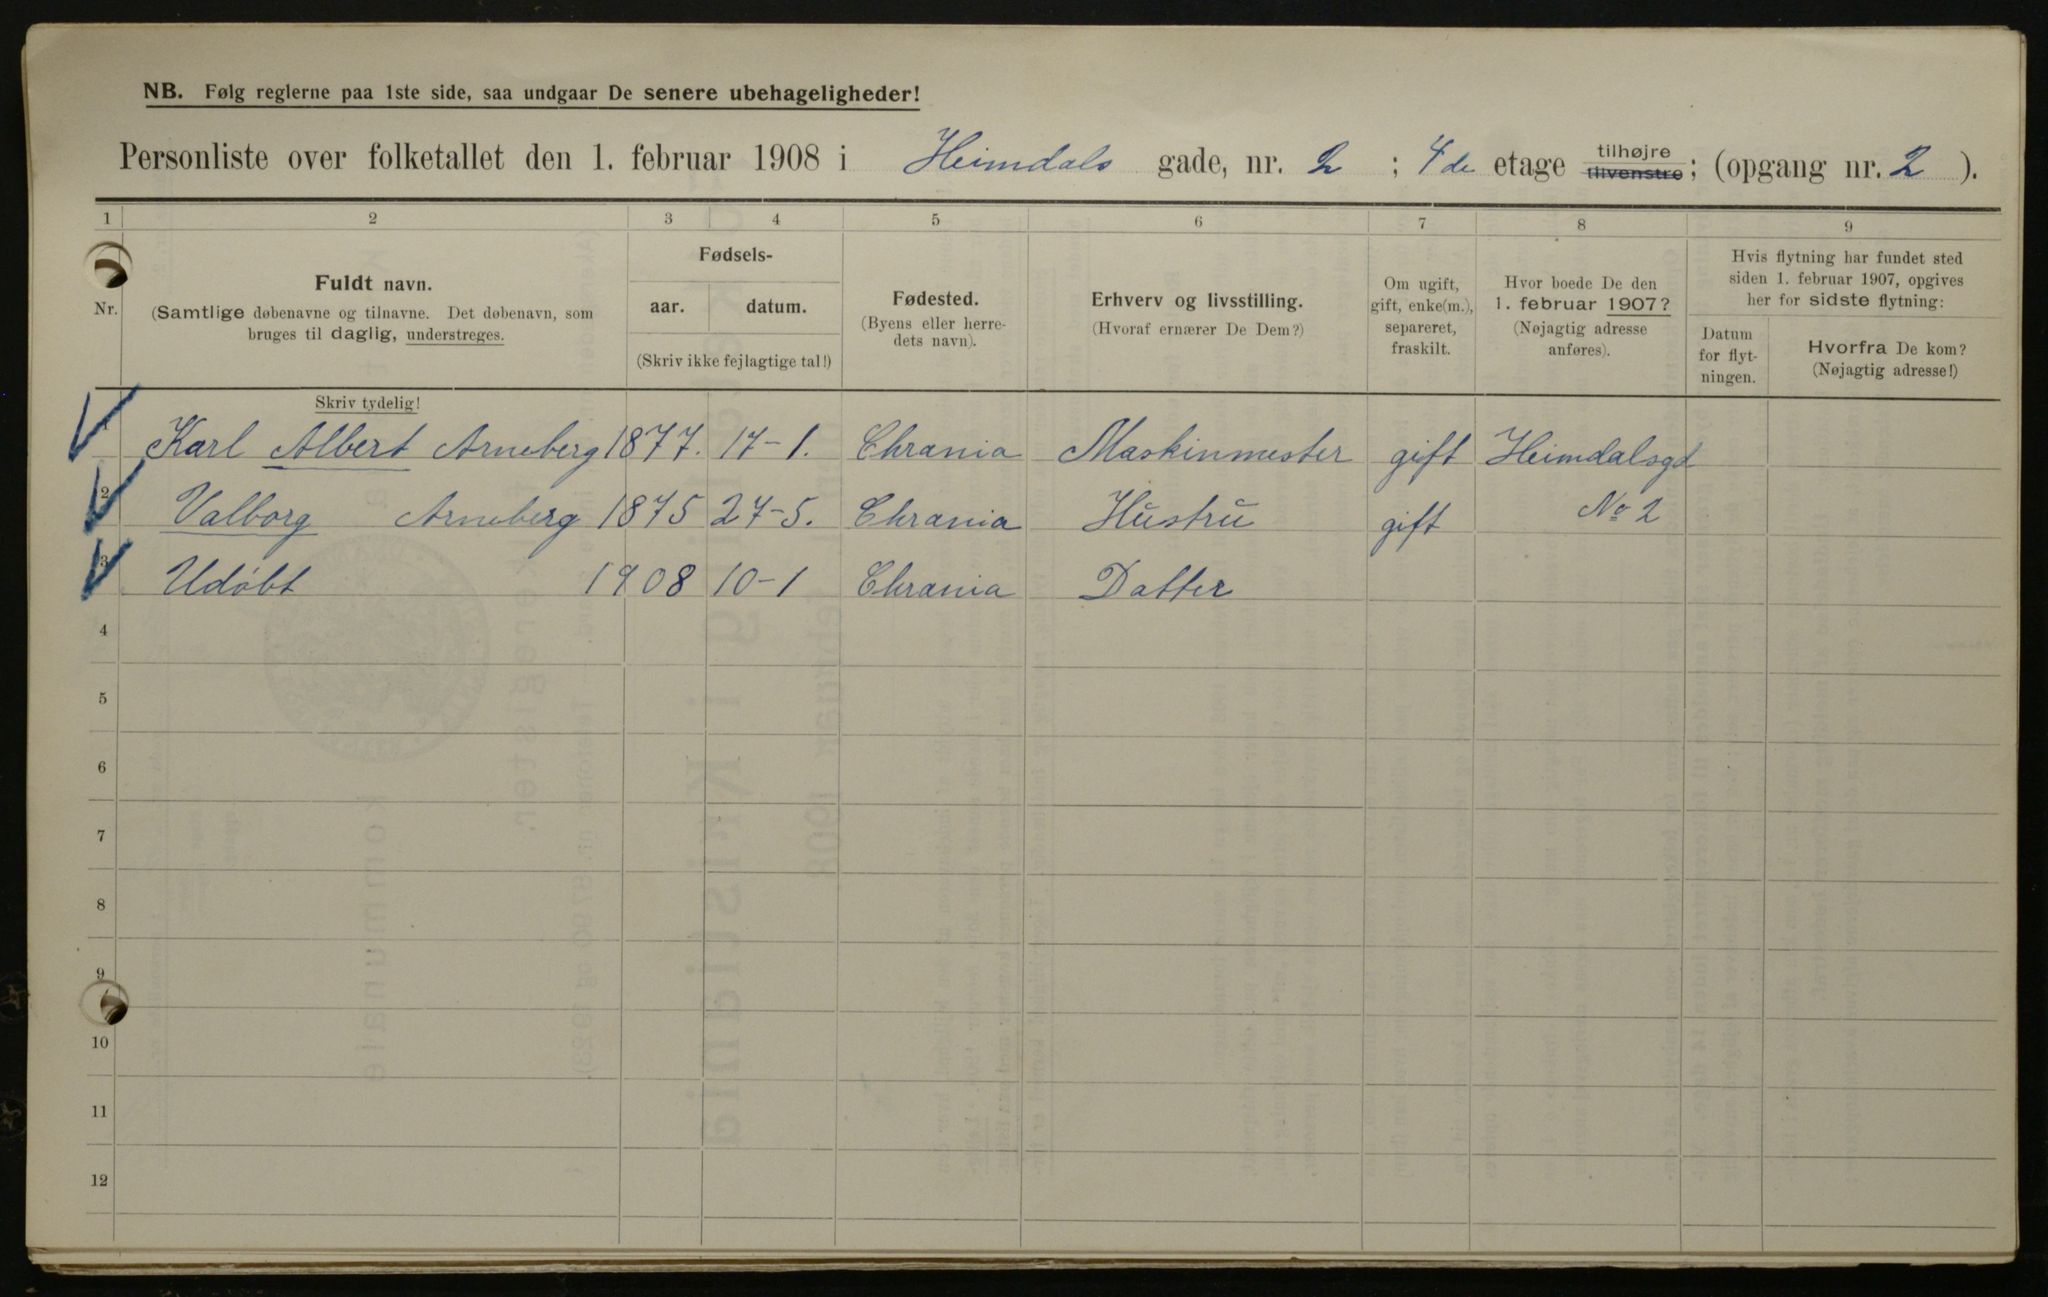 NB. Følg reglerne paa 1ste side, saa undgaar De senere ubehageligheder!
Personliste over folketallet den 1. februar 1908 i Heimdals gade, nr. 2 ; 4de etage tilhøjre tilvenstre; (opgang nr. 2 ).
1 2 3 4 5 6 7 8 9
Nr.
Fuldt navn.
(Samtlige døbenavne og tilnavne. Det døbenavn, som
bruges til daglig, understreges.
Skriv tydelig!
Fødsels-
aar. datum.
(Skriv ikke fejlagtige tal!)
Fødested.
(Byens eller herre-
dets navn).
Erhverv og livsstilling.
(Hvoraf ernærer De Dem?)
Om ugift,
gift, enke(m.),
separeret,
fraskilt.
Hvor boede De den
1. februar 1907?
(Nøjagtig adresse
anføres).
Hvis flytning har fundet sted
siden 1. februar 1907, opgives
her for sidste flytning:
Datum
for flyt-
ningen.
Hvorfra De kom?
(Nøjagtig adresse!)
1 Karl Albert Arneberg 1877. 17-1. Chrania Maskinmester gift Heimdalsgd
2 Valborg Arneberg 1875 27-5. Chrania Hustru gift No 2
3 Udøbt 1908 10-1 Chrania Datter
4
5
6
7
8
9
10
11
12